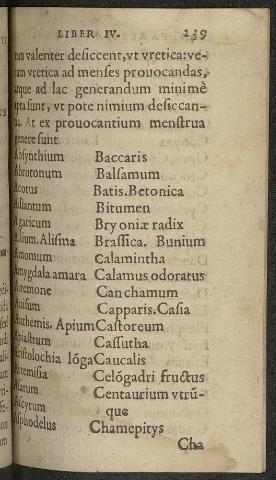 LIBER IV. 239
tum valenter desiccent, vt vretica: ve-
rum vretica ad menses prouocandas,
atque ad lac generandum minimè
apta sunt, vt pote nimium desiccan-
tia. At ex prouocantium menstrua
genere sunt
Absynthium Baccaris
Abrotonum Balsamum
Acorus Batis. Betonica
Adiantum Bitumen
Agaricum Bryoniæ radix
Allium. Alisma Brassica. Bunium
Amomum Calamintha
Amygdala amara Calamus odoratus
Anemone Canchamum
Anisum Capparis. Casia
Anthemis. Apium Castoreum
Apiastrum Cassutha
Aristolochia lóga Caucalis
Artemisia Celógadri fructus
Asarum Centaurium vtrũ-
Ascyrum que
Asphodelus Chamepitys
Cha